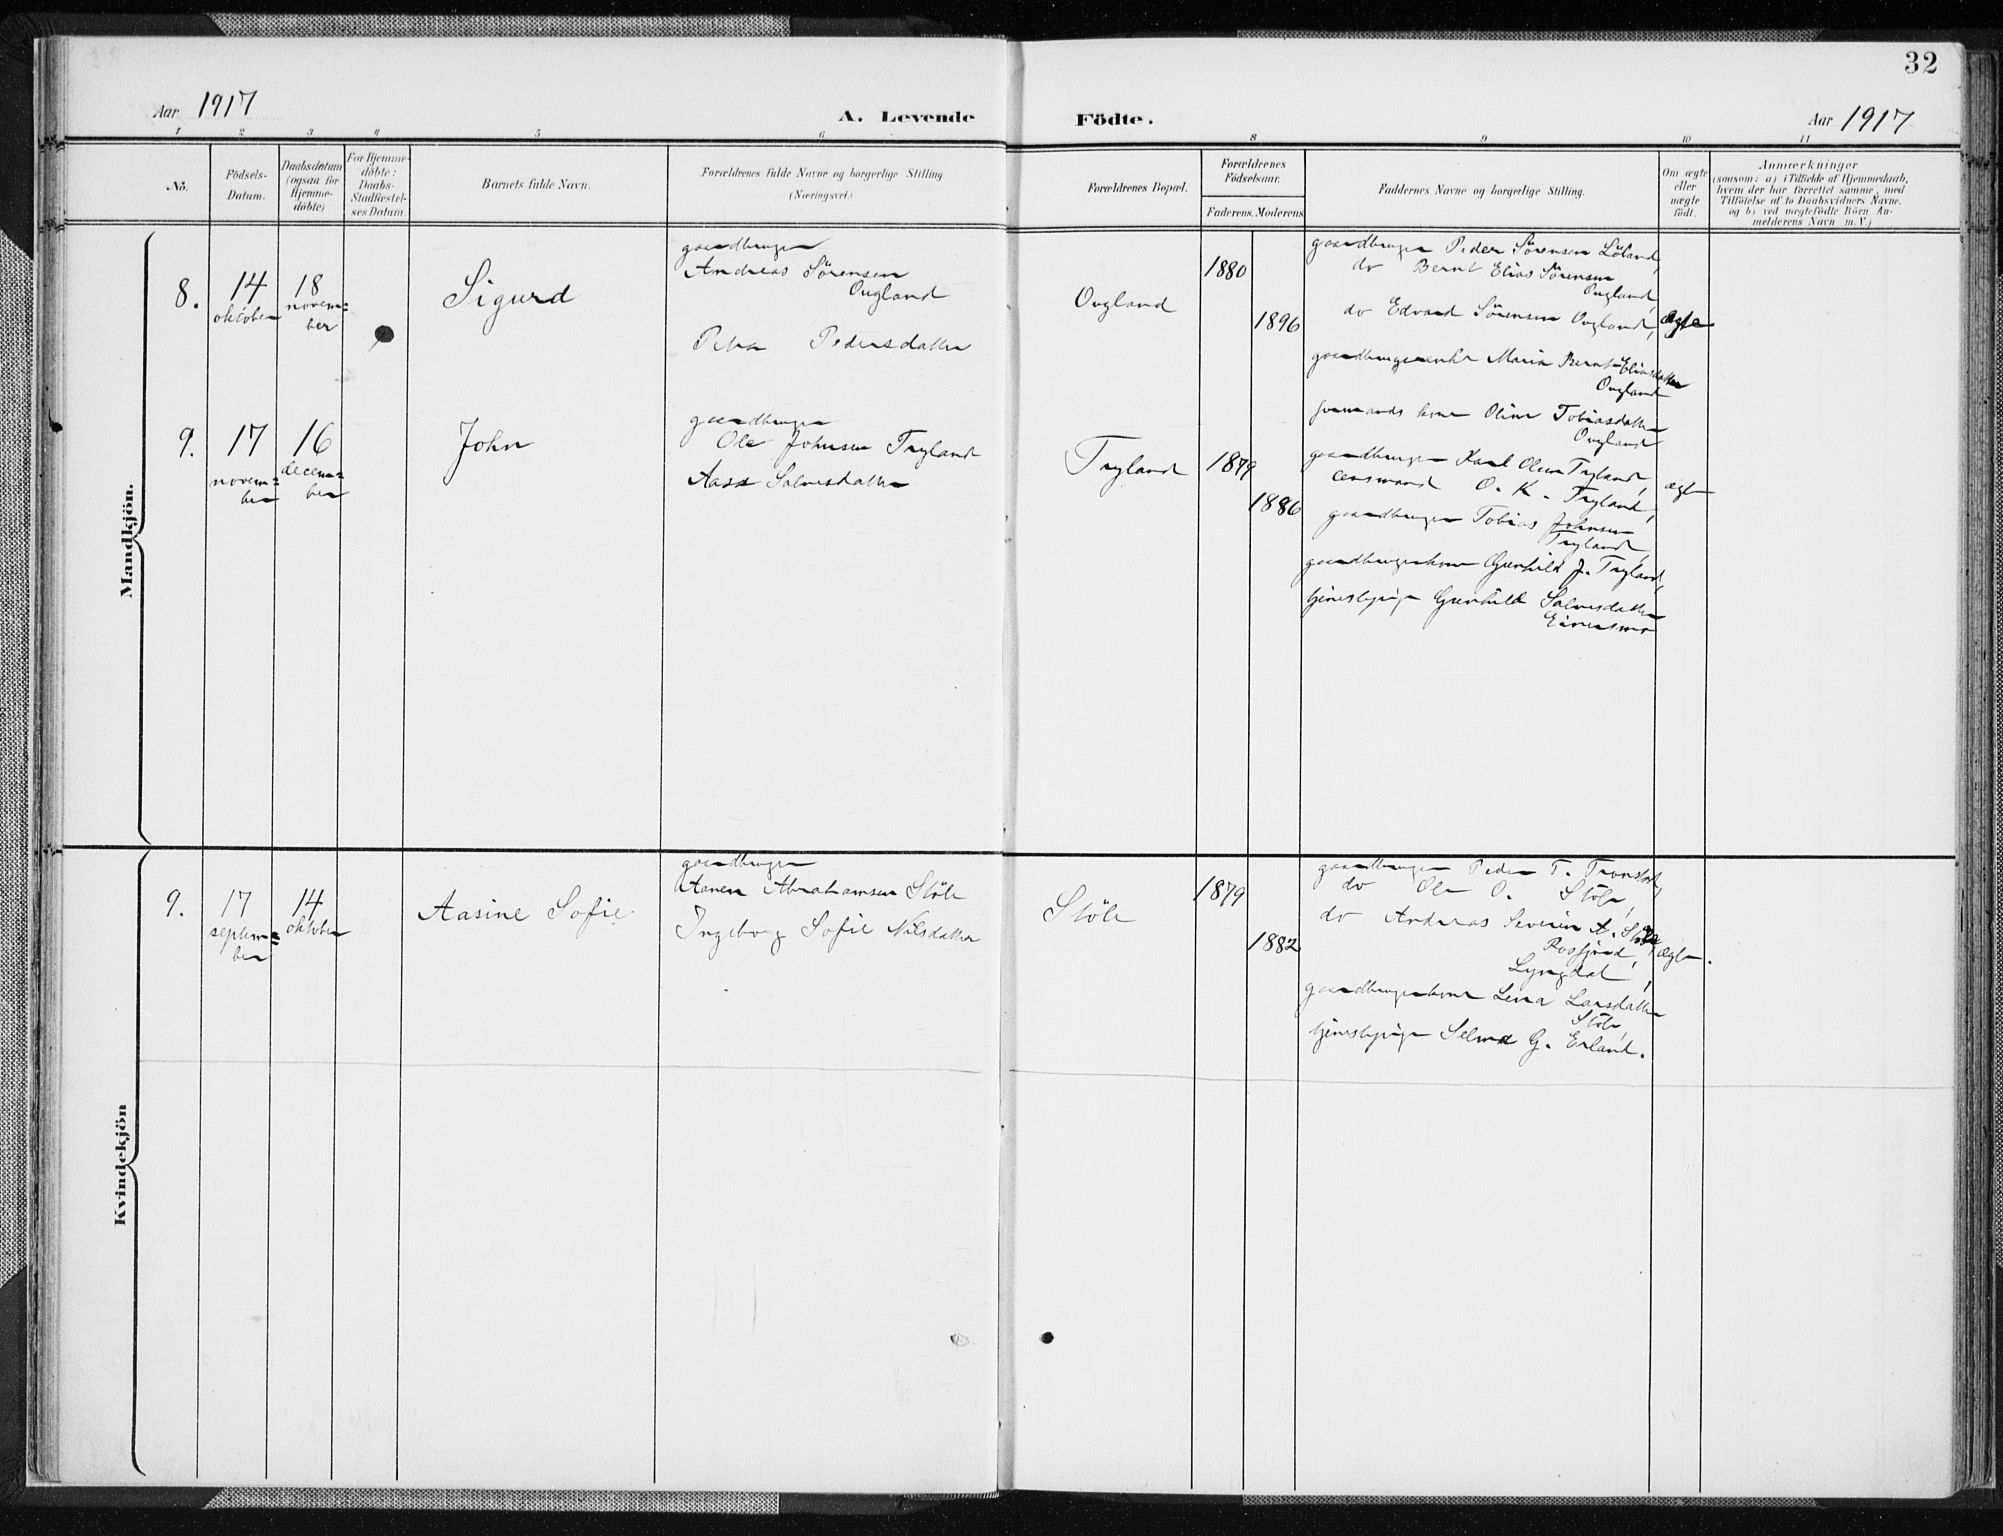 32
Aar 1917
A. Levende Födte.
Aar 1917
1 2 3 4 5 6 8 9 10 11
No.
Födsels-
Datum.
Daabsdatum
(ogsaa for
Hjemme-
döbte)
For Hjemme-
döbte:
Daabs-
Stadfæstel-
ses Datum.
Barnets fulde Navn.
Forældrenes fulde Navne og borgerlige Stilling
(Næringsvei)
Forældrenes Bopæl.
Forældrenes
Födselsaar.
Faderens. Moderens
Faddernes Navne og borgerlige Stilling.
Om ægte
eller
uægte
födt.
Anmærkninger
(saasom: a) i Tilfælde af Hjemmedaab,
hvem der har forrettet samme, med
Tilföielse af to Daabsvidners Navne.
og b) ved uægtefödte Börn An-
melderens Navn m. V.)
Mandkjön.
8.
14
oktober
18
novem=
ber
Sigurd
gaardbruger
Andreas Sörensen
Ougland
Petra Pedersdatter
Ougland
1880
1896
gaardbruger Peder Sörensen Löland,
do Bernt Elias Sörensen
Ougland,
do Edvard Sörensen Ougland,
gaardbrugerenke Maria Bernt Eliasdatter
Ougland
kone Oline Tobiasdatter
Ougland
ægte
9.
17
novem=
ber
16
decem=
ber
John
gaardbruger
Ole Johnsen Tryland
Aase Salvesdatter
Tryland
1879
1886
gaardbruger Karl Olsen Tryland,
O. K. Tryland,
gaardbruger Tobias Johnsen
Tryland,
gaardbrugerkone Gunhild J. Tryland,
tjenestepige Gunhild Salvesdatter
ægte
Kvindekjön
9.
17
septem=
ber
14
oktober
Aasine Sofie
gaardbruger
Aanen Abrahamsen Stöle
Ingeborg Sofie Nilsdatter
Stöle
1879
1882
gaardbruger Peder T.
do Ole O. Stöle,
do Andreas Severin A. Stöle
Rosfjord,
Lyngdal,
gaardbrugerkone Lena Larsdatter
Stöle,
tjenestepige Selma G. Erland.
ægte.